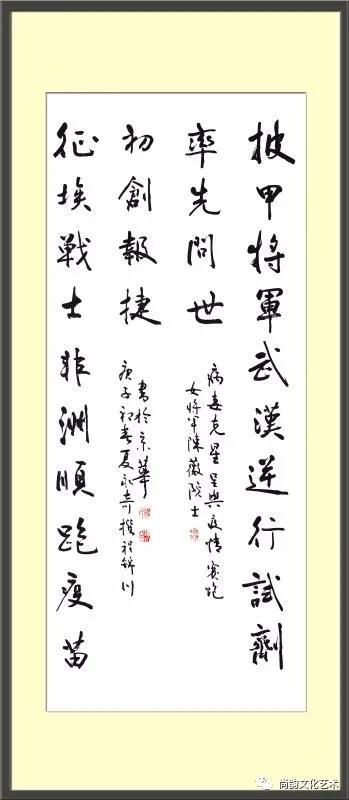 披甲将軍武漢逆行試劑
率先問世
病毒克星呈與疫情賽跑
女将军陳薇院士
征埃戰士非洲順跑疫苗
初創報捷
庚子初春夏永奇撰程錦川
書於京華
尚韵文化艺术